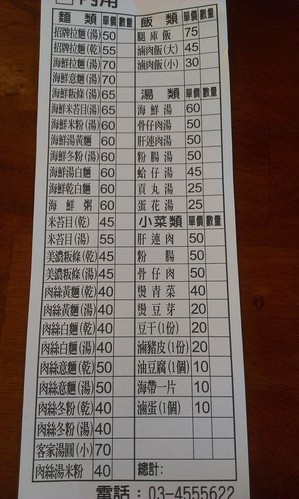 內用
麵類 單價 數量 飯類 單價 數量
招牌拉麵(湯) 50 腿庫飯 75
招牌拉麵(乾) 55 滷肉飯(大) 45
海鮮拉麵(湯) 70 滷肉飯(小) 30
海鮮意麵(湯) 70
海鮮粄條(湯) 65 湯類 單價 數量
海鮮米苔目(湯) 65 海鮮湯 60
海鮮米粉(湯) 60 骨仔肉湯 50
海鮮湯黃麵 60 肝連肉湯 50
海鮮冬粉(湯) 60 粉腸湯 50
海鮮湯白麵 60 蛤仔湯 45
海鮮乾白麵 60 貢丸湯 25
海鮮粥 60 蛋花湯 25
米苔目(乾) 45 小菜類 單價 數量
米苔目(湯) 55 肝連肉 50
美濃粄條(乾) 45 粉腸 50
美濃粄條(湯) 45 骨仔肉 50
肉絲黃麵(乾) 40 燙青菜 40
肉絲黃麵(湯) 40 燙豆芽 20
肉絲白麵(乾) 40 豆干(1份) 20
肉絲白麵(湯) 40 滷豬皮(1份) 20
肉絲意麵(乾) 50 油豆腐(1個) 10
肉絲意麵(湯) 50 海帶一片 10
肉絲冬粉(乾) 40 滷蛋(1個) 10
肉絲冬粉(湯) 40
客家湯圓(小) 70
肉絲湯米粉 40 總計:
電話:03-4555622